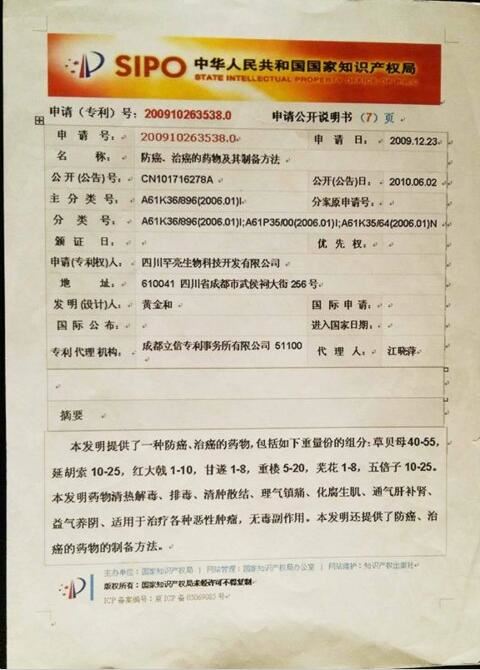 SIPO 中华人民共和国国家知识产权局
STATE INTELLECTUAL PROPERTY OFFICE OF P.R.C
申请（专利）号：200910263538.0 申请公开说明书（7）页
申 请 号： 200910263538.0 申 请 日： 2009.12.23
名 称： 防癌、治癌的药物及其制备方法
公 开 (公告) 号： CN101716278A 公开(公告)日： 2010.06.02
主 分 类 号： A61K36/896(2006.01)I 分案原申请号：
分 类 号： A61K36/896(2006.01)I;A61P35/00(2006.01)I;A61K35/64(2006.01)N
颁 证 日： 优 先 权：
申请(专利权)人： 四川罕亮生物科技开发有限公司
地 址： 610041 四川省成都市武侯祠大街 256 号
发 明 (设计)人： 黄金和 国 际 申 请：
国 际 公 布： 进入国家日期：
专利代理机构： 成都立信专利事务所有限公司 51100 代 理 人： 江晓萍
摘要
本发明提供了一种防癌、治癌的药物,包括如下重量份的组分:草贝母40-55,
延胡索 10-25，红大戟 1-10，甘遂 1-8，重楼 5-20，芫花 1-8，五倍子 10-25。
本发明药物清热解毒、排毒、清肿散结、理气镇痛、化腐生肌、通气肝补肾、
益气养阴、适用于治疗各种恶性肿瘤，无毒副作用。本发明还提供了防癌、治
癌的药物的制备方法。
主办单位：国家知识产权局 | 网站管理：国家知识产权局办公室 | 网站维护：知识产权出版社
版权所有：国家知识产权局未经许可不得复制
ICP 备案编号：京 ICP 备 05069085 号